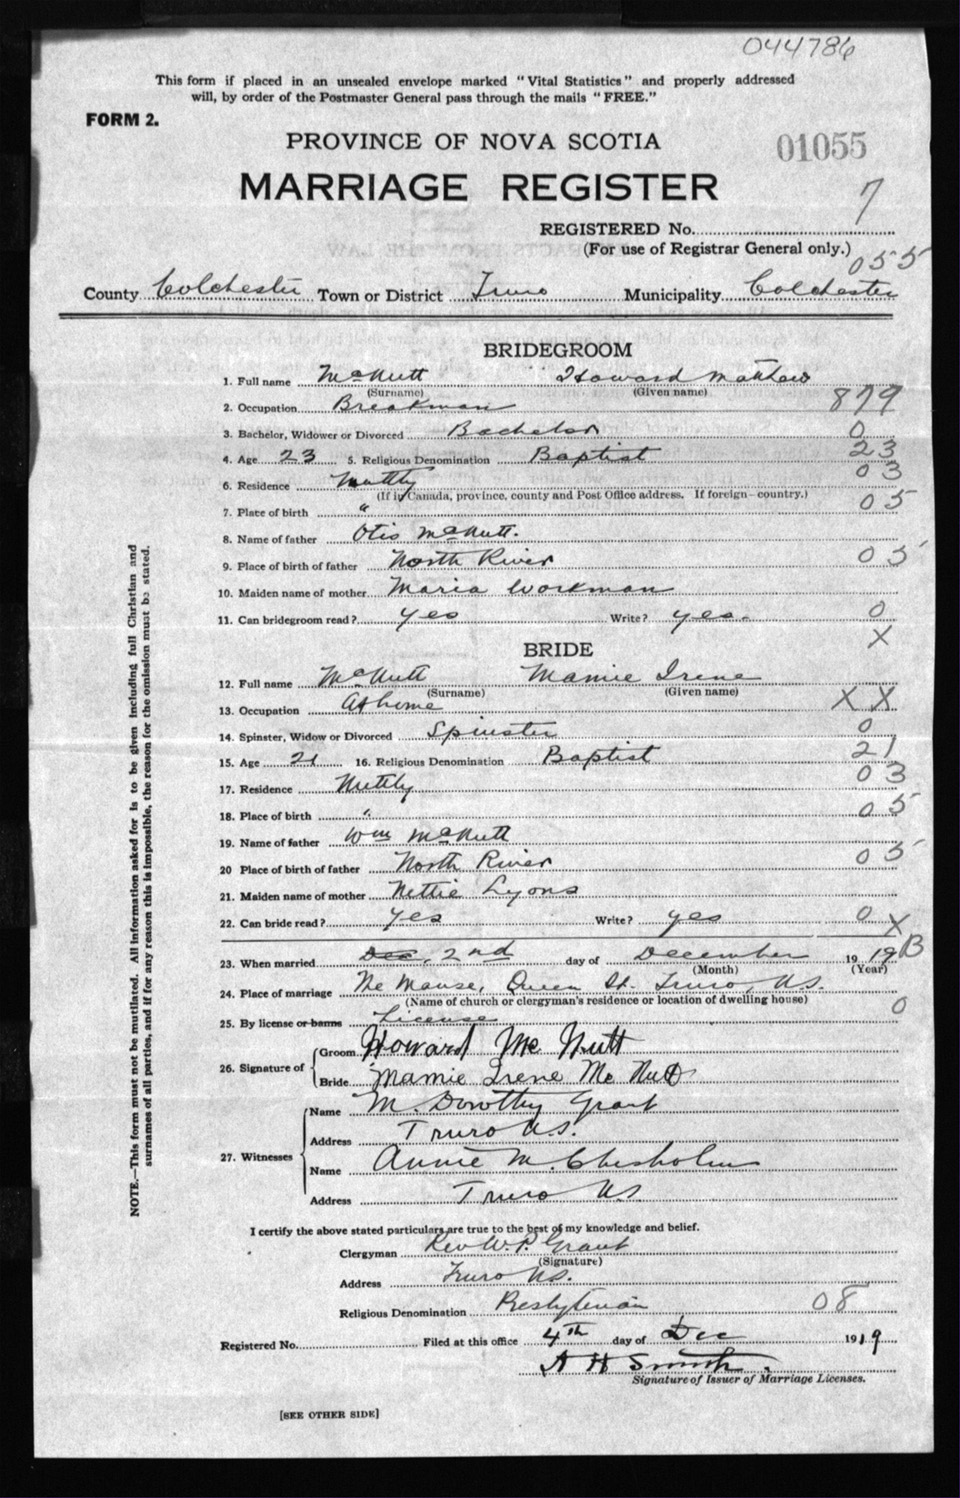 044786
This form if placed in an unsealed envelope marked "Vital Statistics" and properly addressed
will, by order of the Postmaster General pass through the mails "FREE."
FORM 2.
PROVINCE OF NOVA SCOTIA
01055
MARRIAGE REGISTER
7
REGISTERED No.
(For use of Registrar General only.)
055
County Colchester Town or District Truro Municipality Colchester
BRIDEGROOM
1. Full name McNutt Howard Matthew
(Surname) (Given name)
2. Occupation Breakman 879
3. Bachelor, Widower or Divorced Bachelor 0
4. Age 23 5. Religious Denomination Baptist 23
6. Residence Nuttby 03
(If in Canada, province, county and Post Office address. If foreign-country.)
7. Place of birth " 05
8. Name of father Otis McNutt.
9. Place of birth of father North River 05
10. Maiden name of mother Maria Workman
11. Can bridegroom read? Yes Write? yes. 0
X
BRIDE
12. Full name McNutt Mamie Irene
(Surname) (Given name)
13. Occupation At home XX
14. Spinster, Widow or Divorced Spinster 0
15. Age 21 16. Religious Denomination Baptist 21
17. Residence Nuttby 03
18. Place of birth " 05
19. Name of father Wm McNutt
20 Place of birth of father North River 05
21. Maiden name of mother Nettie Lyons
22. Can bride read? Yes Write? yes 0 X
23. When married Dec, 2nd day of December 19 19 B
(Month) (Year)
24. Place of marriage The Manse, Queen St. Truro, N.S.
(Name of church or clergyman's residence or location of dwelling house)
0
25. By license or banns License
26. Signature of
Groom Howard Mc Nutt
Bride Mamie Irene Mc Nutt
27. Witnesses
Name M. Dorothy Grant
Address Truro N.S.
Name Annie M. Chisholm
Address Truro N.S
I certify the above stated particulars are true to the best of my knowledge and belief.
Clergyman Rev W. P. Grant
(Signature)
Address Truro N.S.
Religious Denomination Presbyterian 08
Registered No. Filed at this office 4th day of Dec 1919
A H Smith.
Signature of Issuer of Marriage Licenses.
[SEE OTHER SIDE]
NOTE.—This form must not be mutilated. All information asked for is to be given including full Christian and
surnames of all parties, and if for any reason this is impossible, the reason for the omission must be stated.